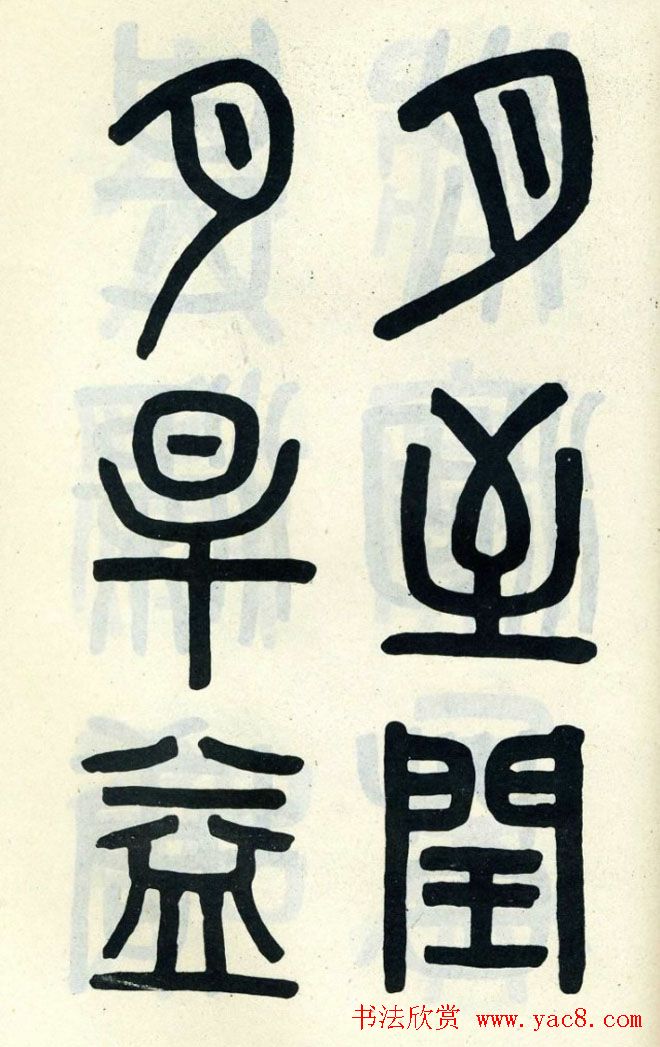 月至閏
月旱益
书法欣赏 www.yac8.com